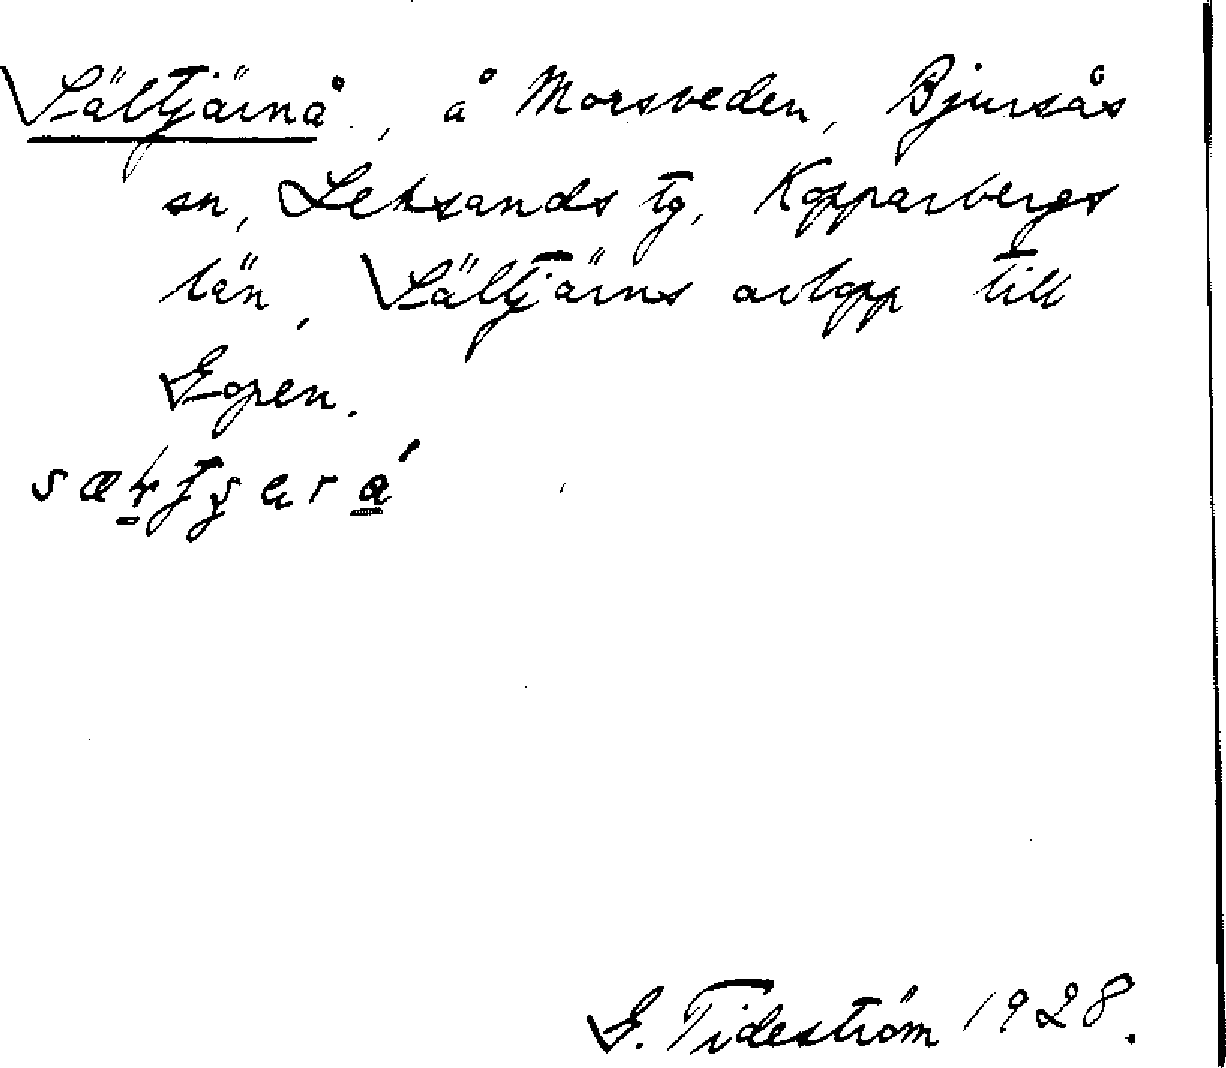 Sältjärnå, å Morsveden, Bjursås
sn, Leksands tg, Kopparbergs
län, Sältjärns avlopp till
Gopen.
G. Tideström 1928.